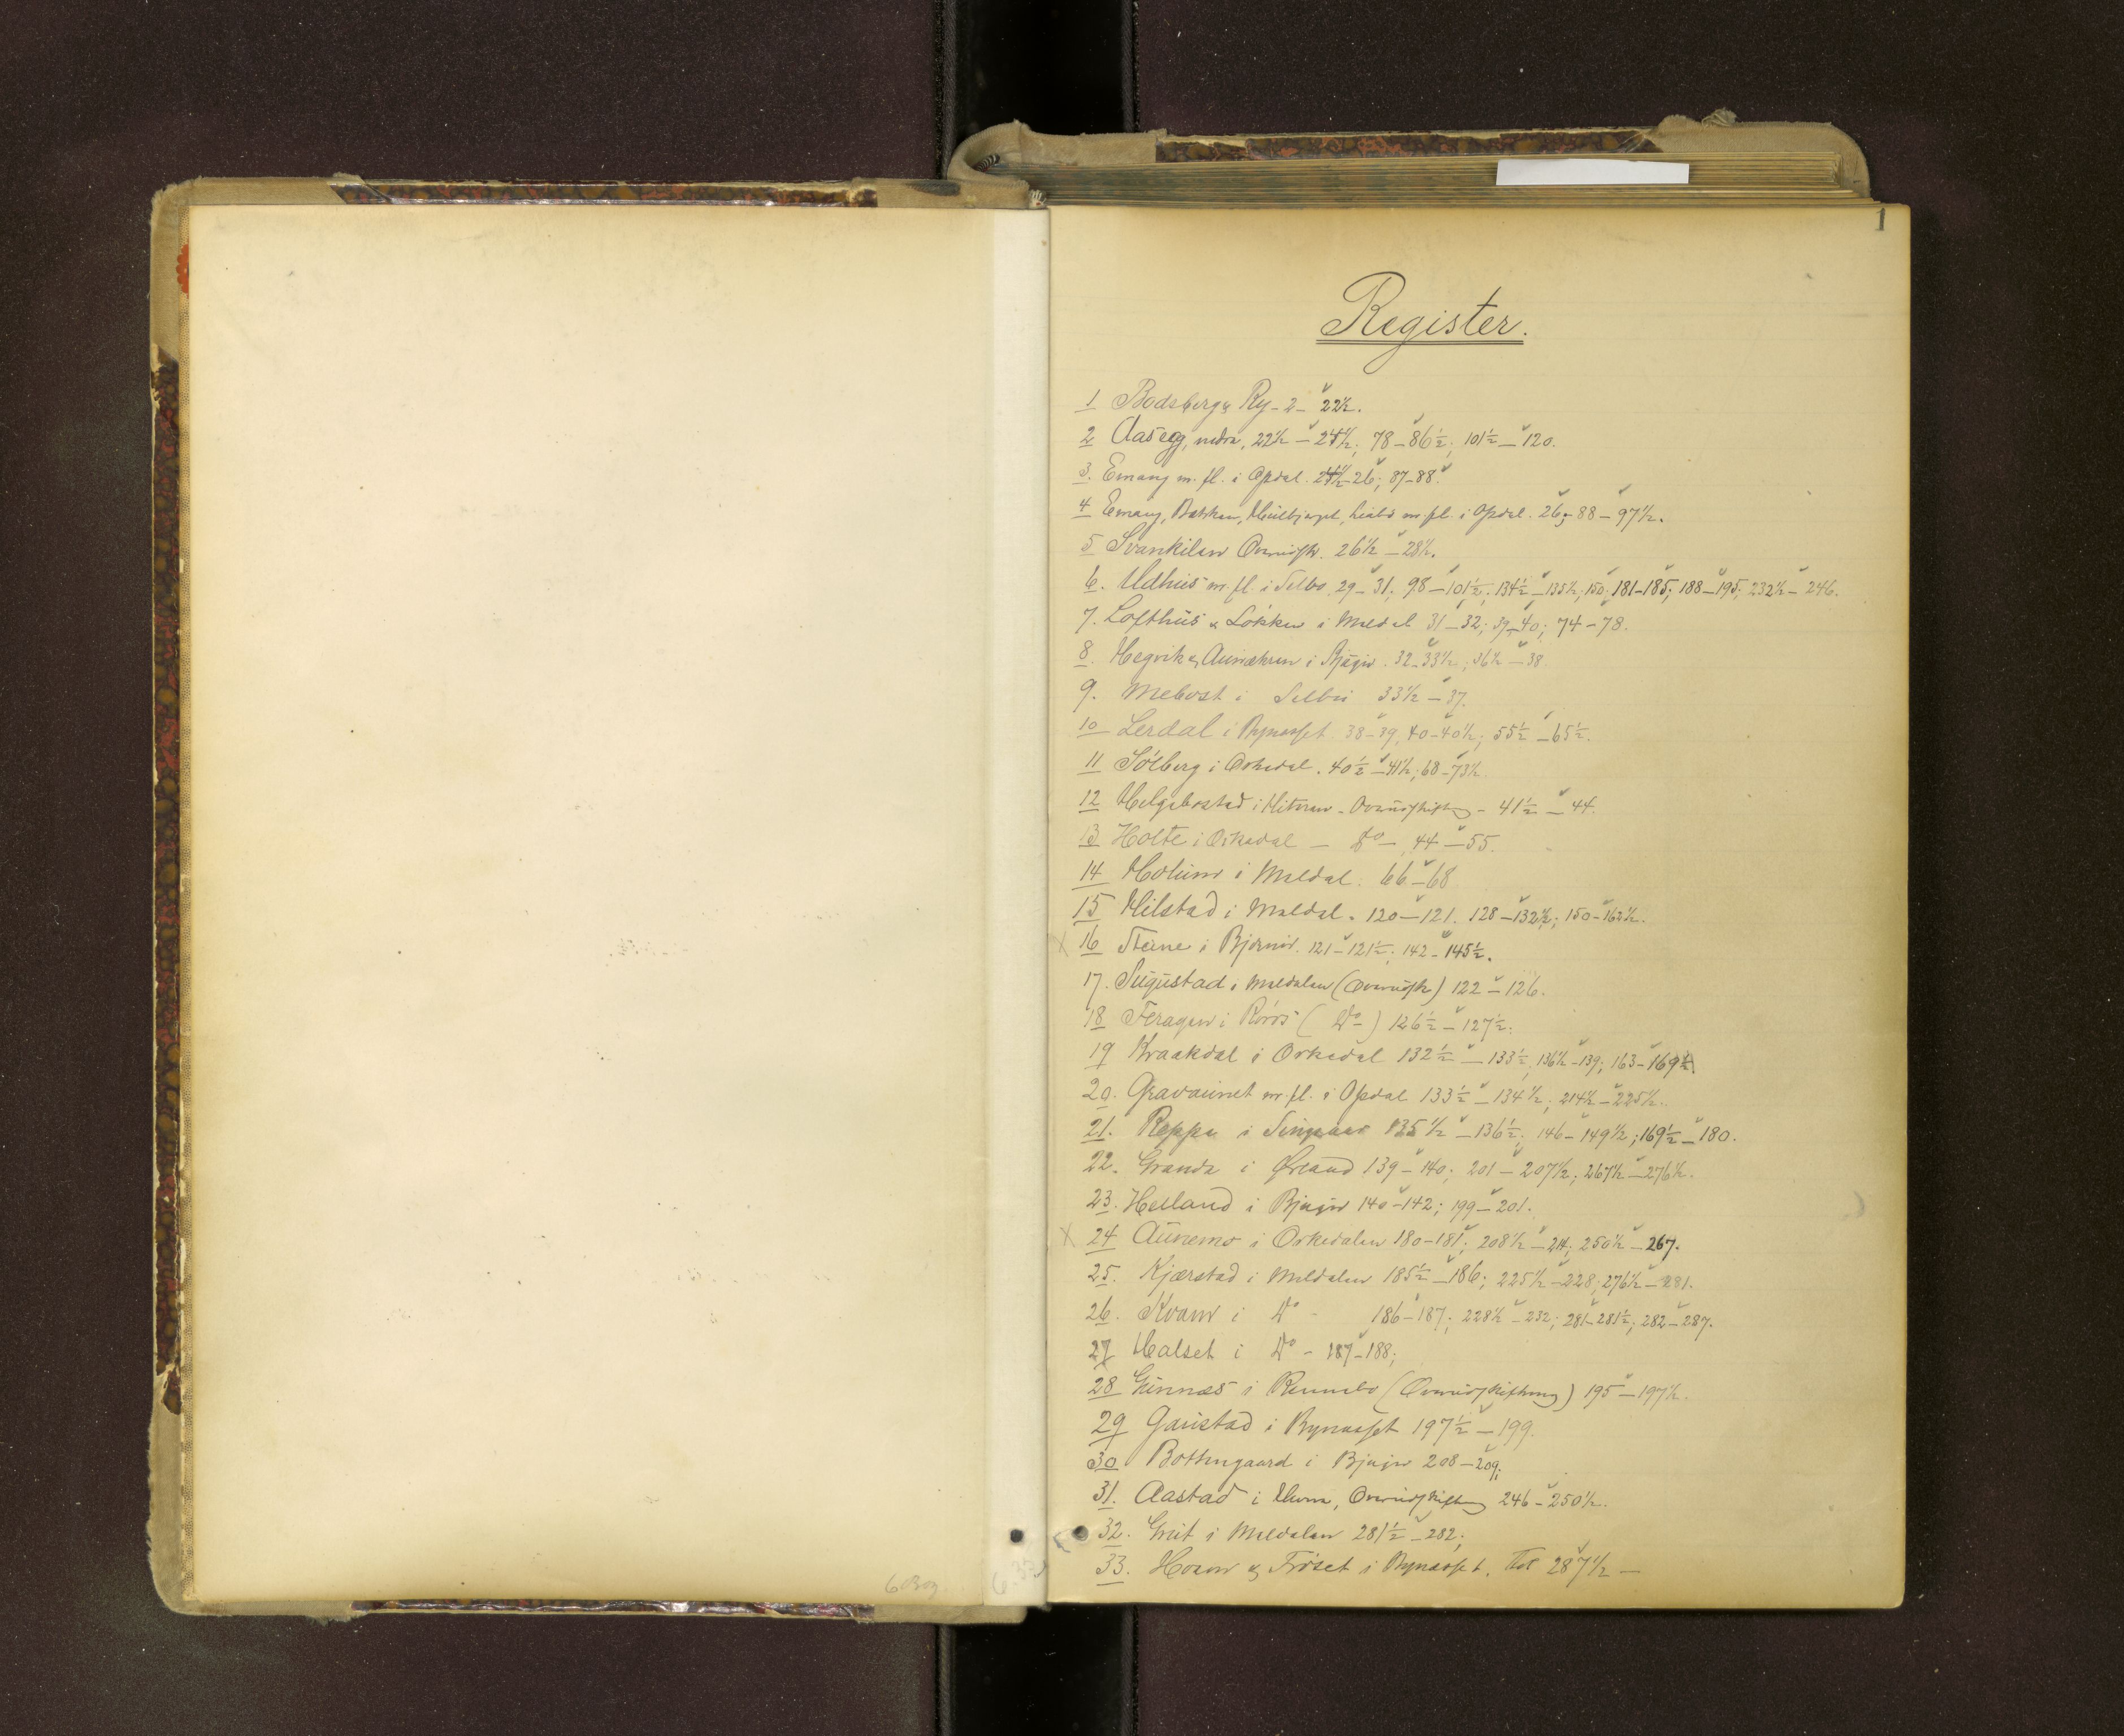 1
Register.
1 Bodsberg & Ry - 2 - 22½.
2 Aasegg, nedre, 22½ - 24½; 78 - 86½; 101½ - 120.
3. Emang m. fl. i Opdal. 24½ - 26; 87 - 88.
4 Emang, m. fl. i Opdal. 26; 88 - 97½.
5 Svankilen Overudsk. 26½ - 28½.
6. Udhus m. fl. i Selbo 29 - 31; 98 - 101½; 134½ - 135½; 150; 181 - 185; 188 - 195; 232½ - 246.
7. Lofthus & Løkken i Meldal 31 - 32; 39 - 40; 74 - 78.
8. Hegvik & i Bjugn. 32 - 33½; 36½ - 38.
9. Mebost i Selbu 33½ - 37.
10 Lerdal i Bynæsset 38 - 39, 40 - 40½; 55½ - 65½.
11 Sølberg i Orkedal. 40½ - 41½; 68 - 73½.
12 Helgebostad i Hiteren - Overudskiftng - 41½ - 44.
13 Holte i Orkedal - do - 44 - 55.
14 Holum i Meldal. 66 - 68
15 Hilstad i Meldal. 120 - 121. 128 - 132½; 150 - 162½.
16 Steine i Bjørnør. 121 - 121½; 142 - 145½.
17. Sugustad i Meldalen (Overudsk) 122 - 126.
18 Feragen i Røros (Do) 126½ - 127½.
19 Kraakdal i Orkedal 132½ - 133½; 136½ - 139; 163 - 169½.
20. Gravaunet m. fl. i Opdal 133½ - 134½; 214½ - 225½.
21. Reppe i Singsaas 135½ - 136½; 146 - 149½; 169½ - 180.
22. Grande i Ørland 139 - 140; 201 - 207½; 267½ - 276½.
23. Helland i Bjugn 140 - 142; 199 - 201.
24 Aunemo i Orkedalen 180 - 181; 208½ - 214; 250½ - 267.
25. Kjærstad i Meldalen 185½ - 186; 225½ - 228; 276½ - 281.
26. Kvam i Do - 186 - 187; 228½ - 232; 281 - 281½; 282 - 287.
27 Halset i Do - 187 - 188;
28 Gunnæs i Rennebo (Overudskiftning) 195 - 197½.
29 Gaustad i Bynæsset 197½ - 199.
30 Bottengaard i Bjugn 208 - 209;
31. Aastad i Hevne, Overudskiftng 246 - 250½.
32. Grut i Meldalen 281½ - 282;
33. Hoem & Frøset i Bynæsset. 287½ -
6 Bog